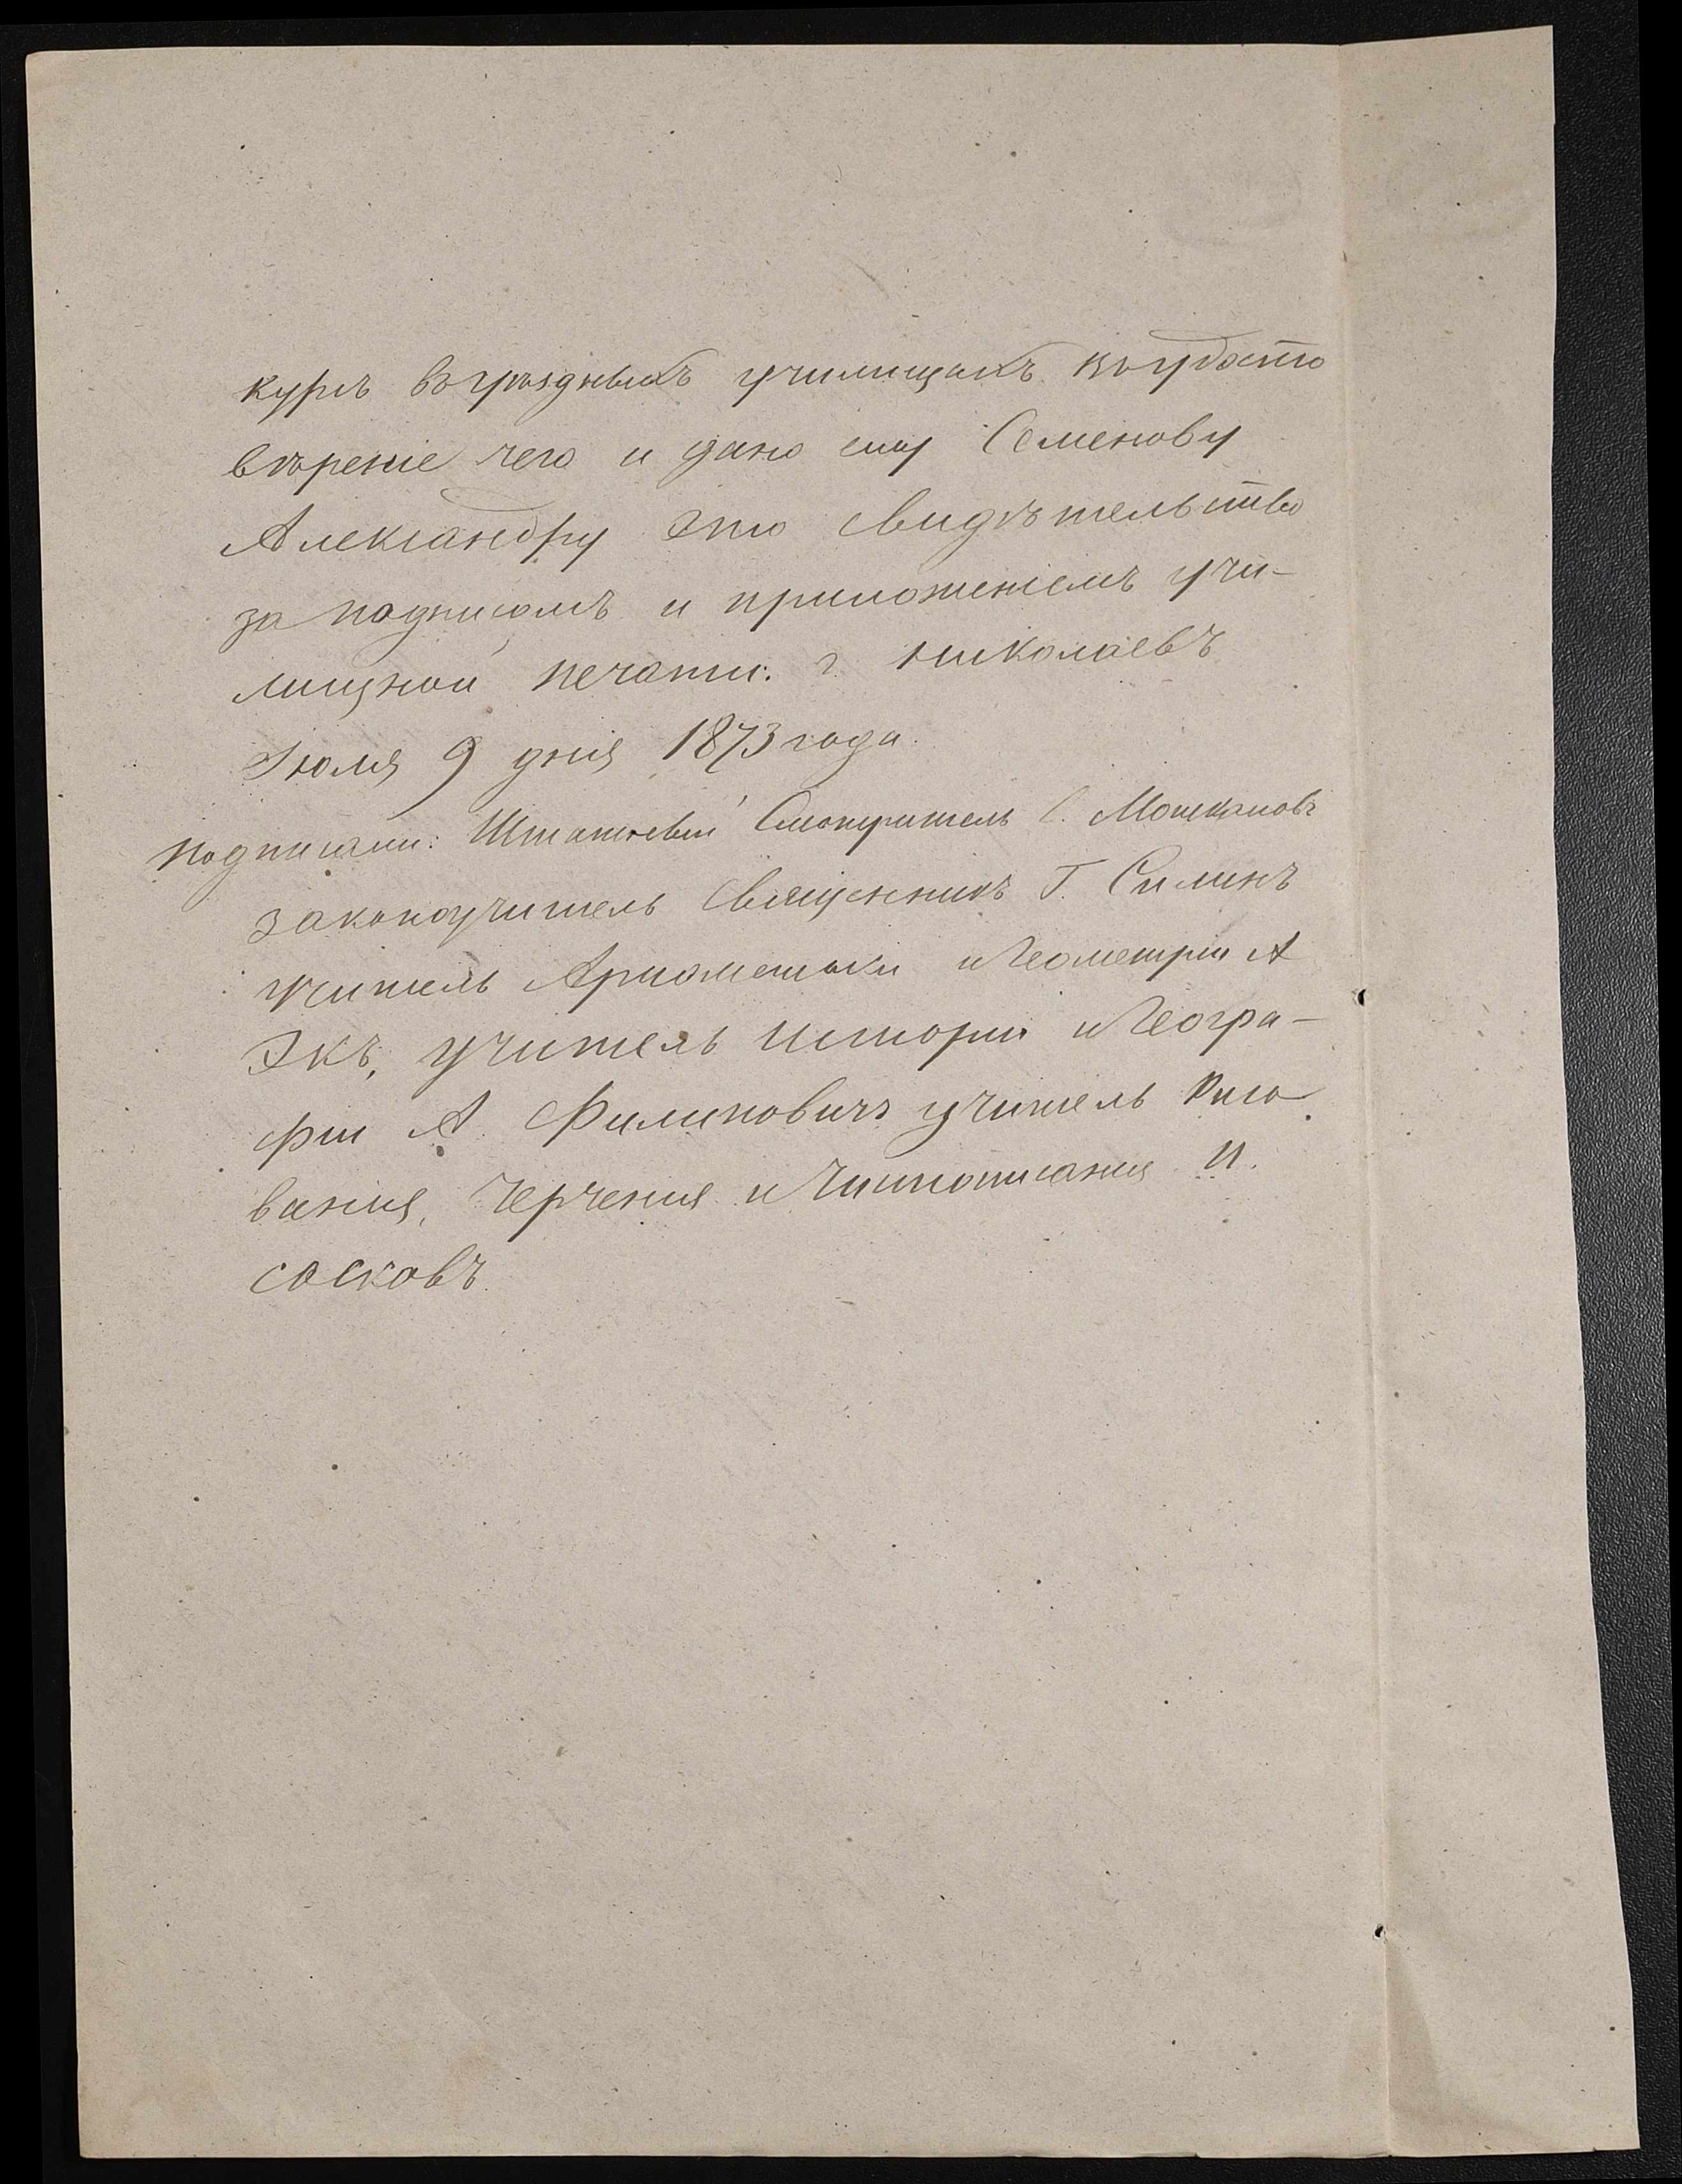 курсъ въ уѣздныхъ училищахъ въ удосто
вѣреніе чего и дано ему Семенову
Александру это свидѣтельство
за подписомъ и приложеніемъ учи-
лищной печати: г. Николаевъ
Іюля 9 дня 1873 года.
Подписали: Штатный Смотритель С.
Законоучитель Священникъ Г. Силинъ
учитель Ариѳметики и Геометріи А
Экъ, учитель Исторіи и Геогра-
фіи А. Филиповичъ учитель Рисо
ванія, Черченія и Чистописанія И.
Сосковъ.